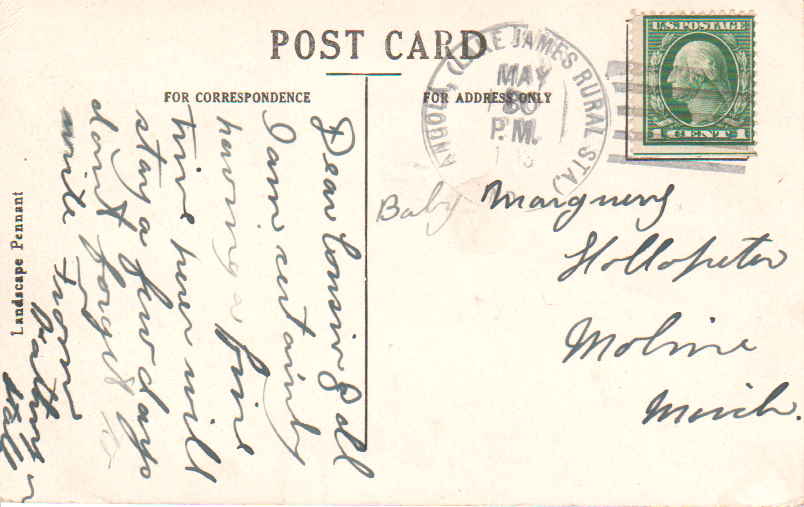 POST CARD
FOR CORRESPONDENCE
FOR ADDRESS ONLY
ANGOLA, (LAKE JAMES RURAL STA.)
MAY
30
P.M.
U.S. POSTAGE
1 CENT 1
Landscape Pennant
Dear Cousin & all
I am certainly
having a fine
time here will
stay a few days
don't forget to
write From
Kathryn
Baby Marguery
Hollopeter
Moline
Mich.